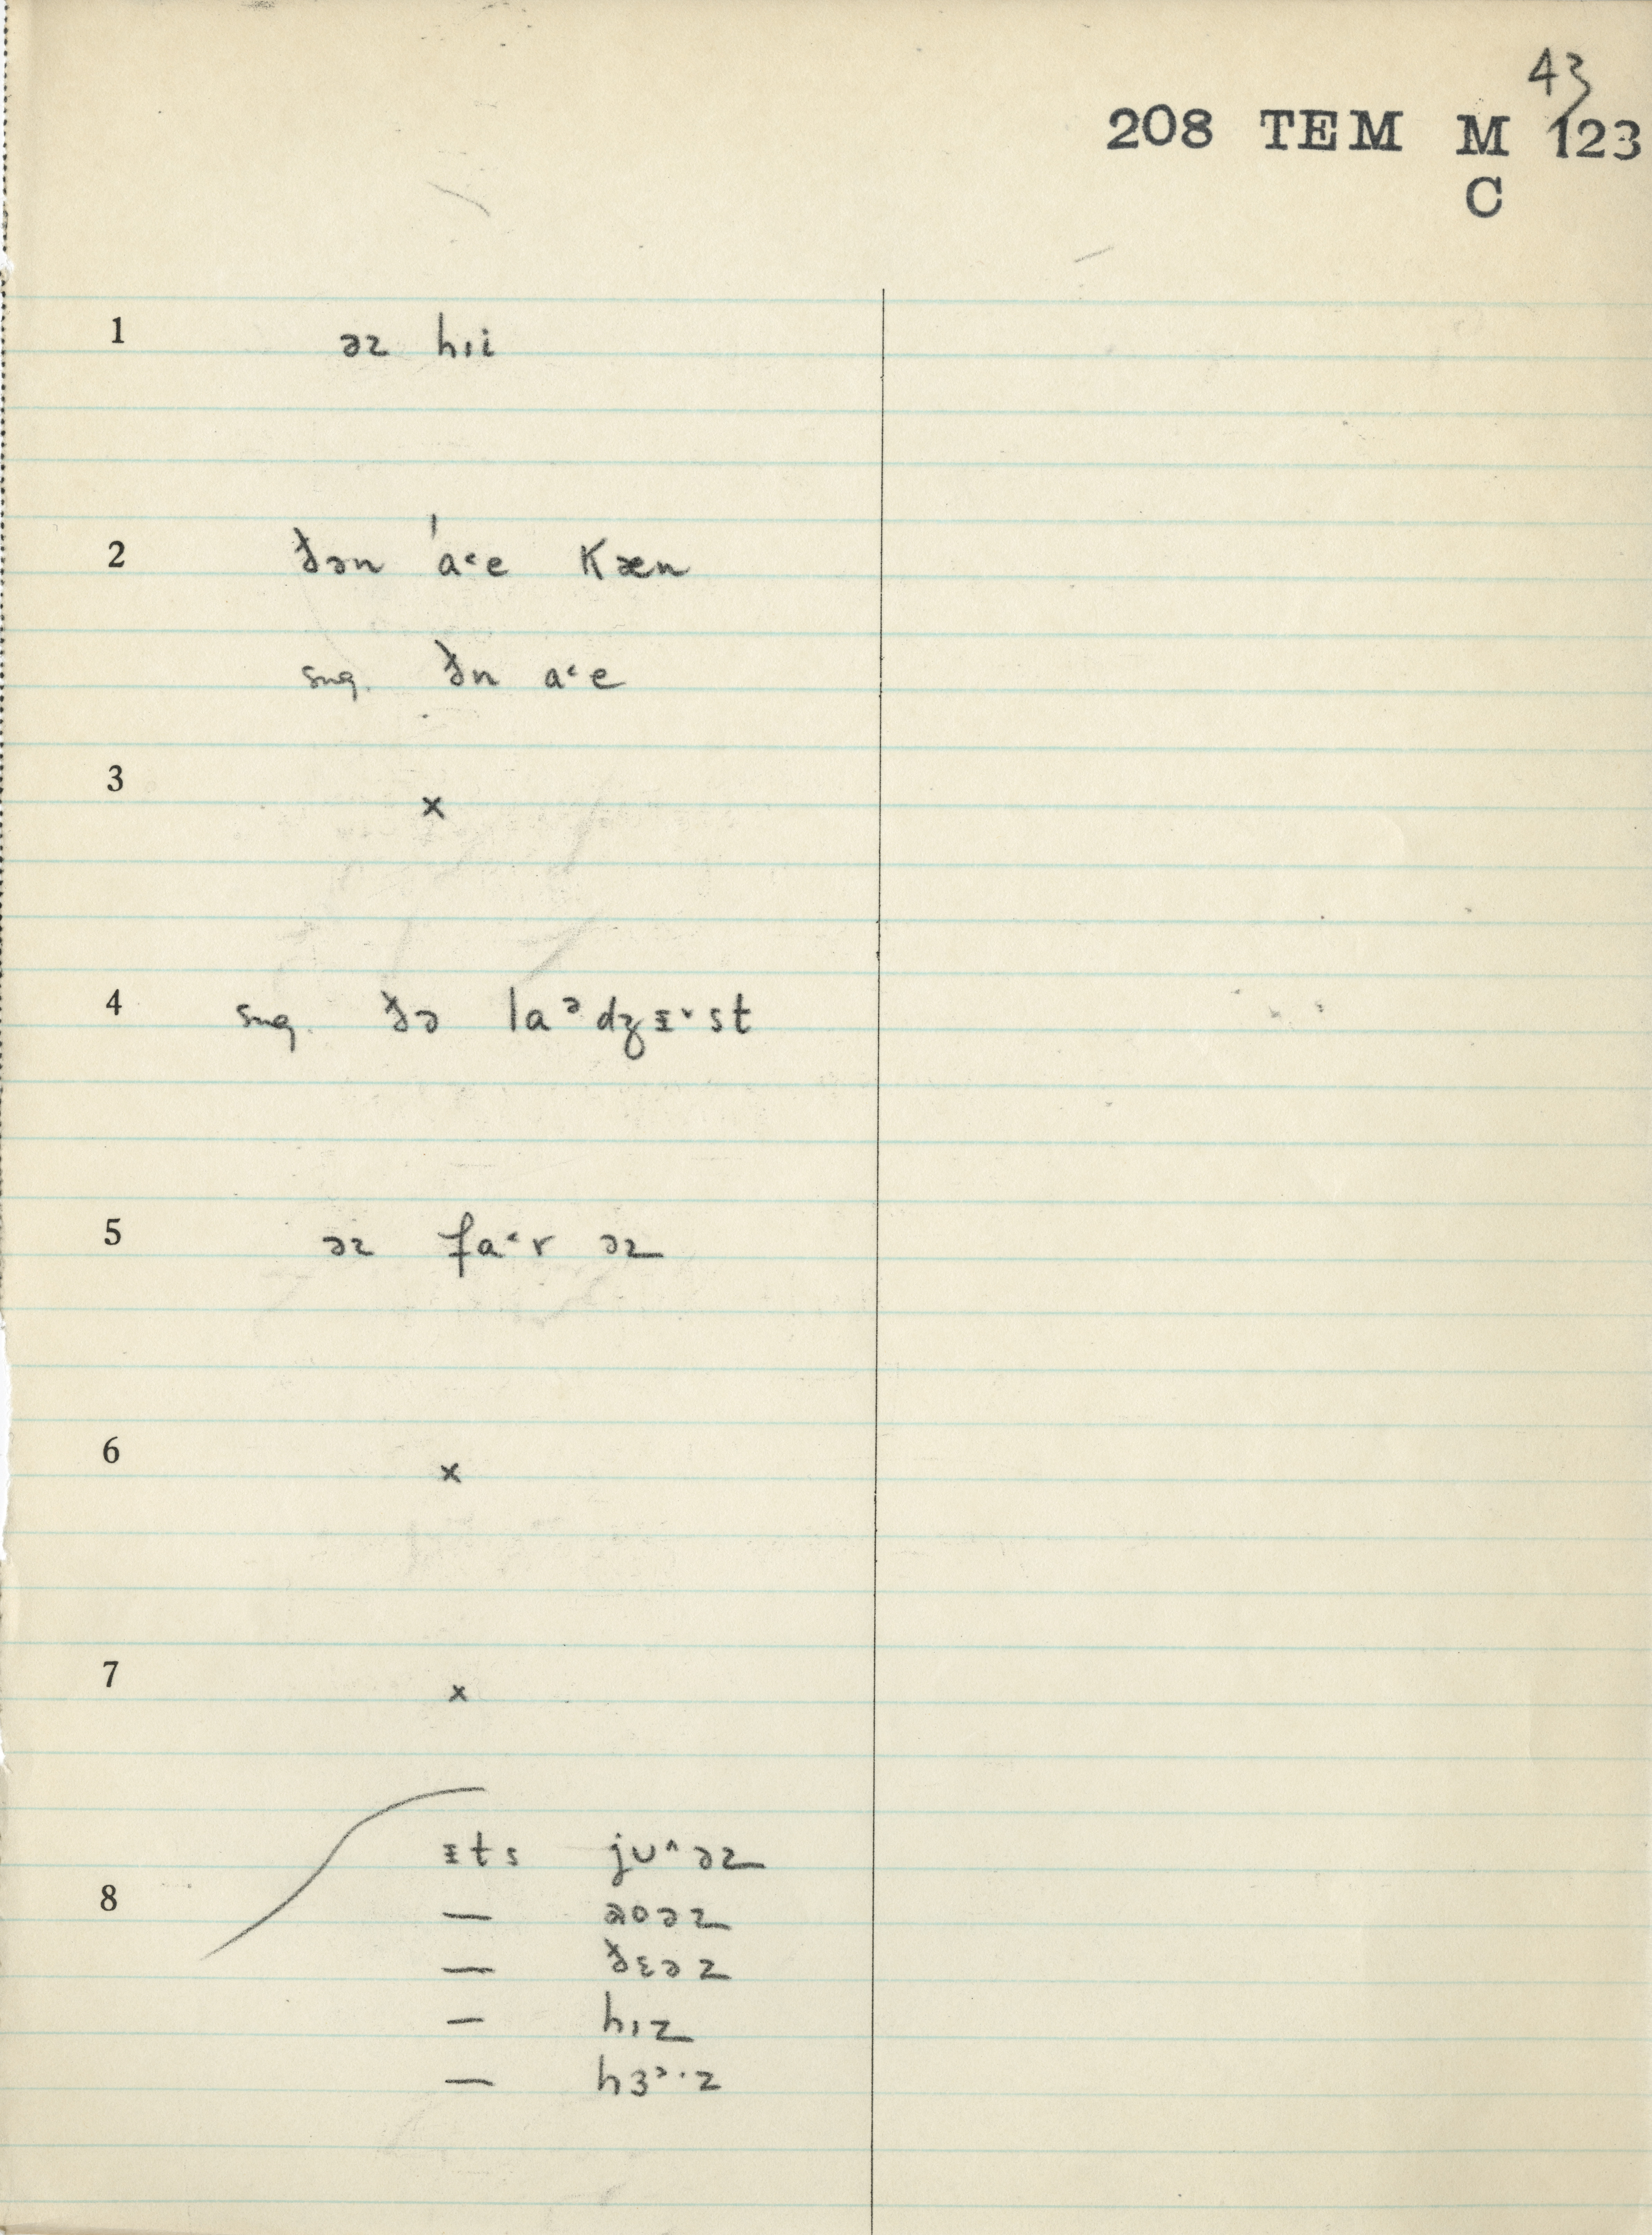 43
208 TEM M 123
C
1 əz hɪi
2 ðən ˈa˂e kæn
sug. ðn a˂e
3 x
4 sug. ðə laᵊdʒɪ˅st
5 əz fa˂r əz
6 x
7 x
ɪts jʊ^əz
8 — aʊəz
— ðɛəz
— hɪz
— hɜ˒·z